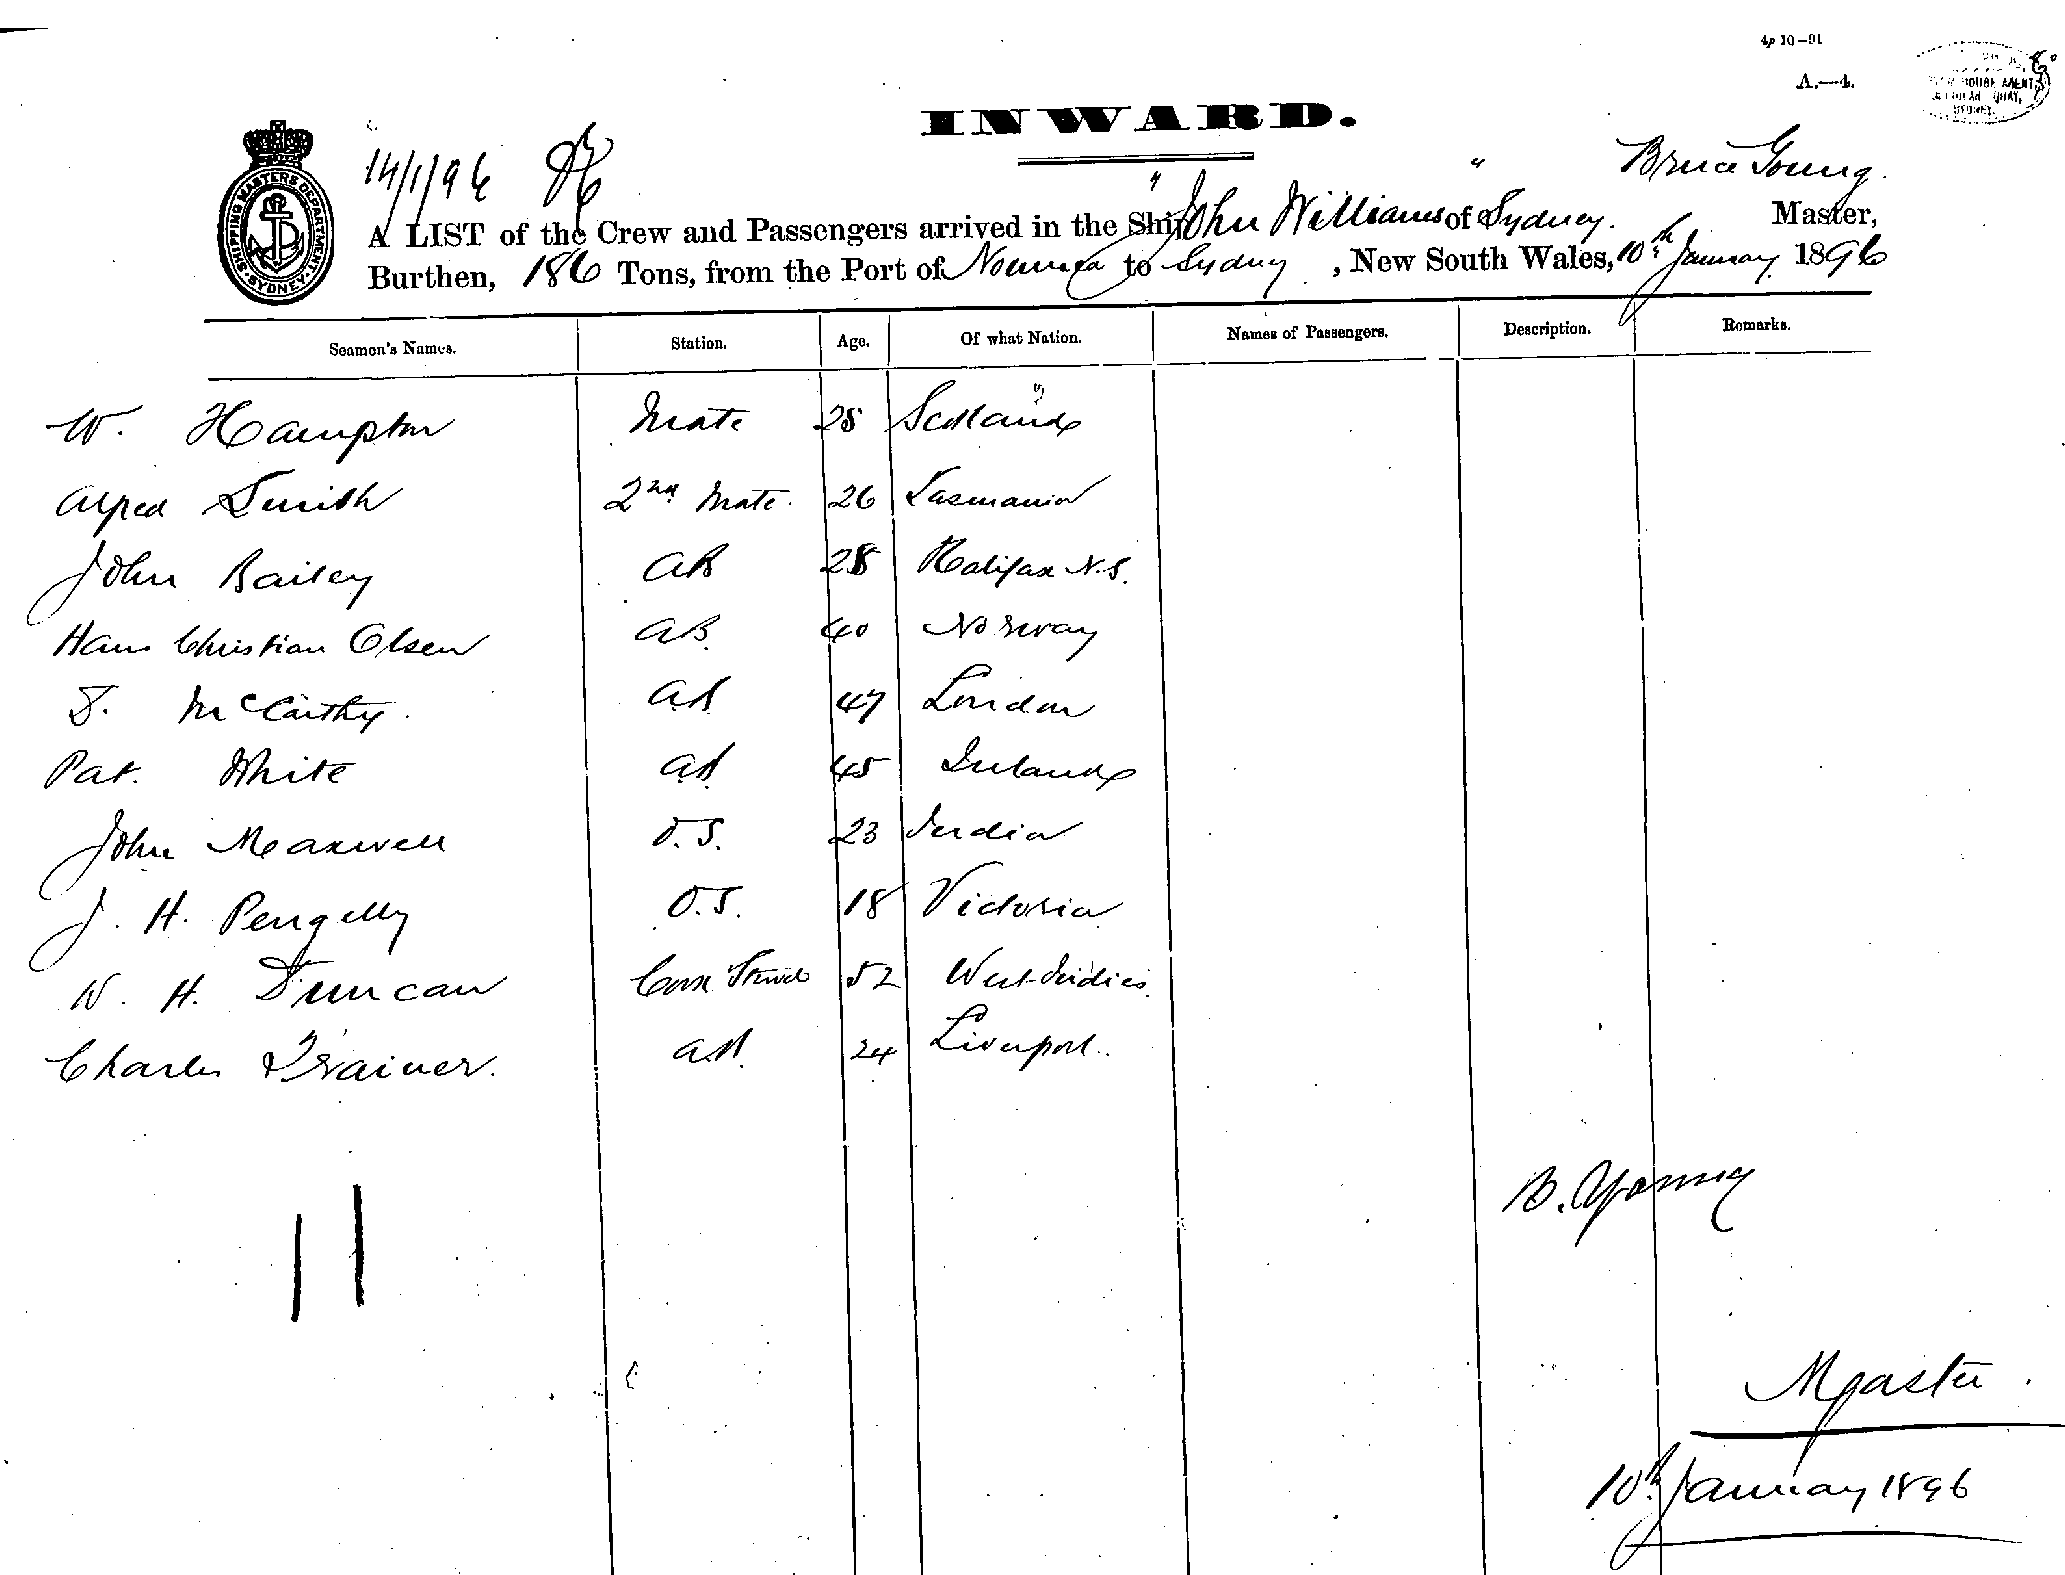 4p 10–91
A.—4.
HOUSE AGENT,
QUAY,
SYDNEY.
INWARD.
SHIPPING MASTERS DEPARTMENT SYDNEY
14/1/96
Bruce Young
A LIST of the Crew and Passengers arrived in the Ship "John Williams" of Sydney. Master,
Burthen, 186 Tons, from the Port of Noumea to Sydney, New South Wales, 10th January 1896
Seamen's Names. Station. Age. Of what Nation. Names of Passengers. Description. Remarks.
W. Hampton Mate 28 Scotland
Alfred Smith 2nd Mate. 26 Tasmania
John Bailey AB 28 Halifax N.S.
Hans Christian Olsen AB. 40 Norway
McCarthy. AB 47 London
Pat. White AB 45 Ireland
John Maxwell O.S. 23 India
J. H. Pengelly O.S. 18 Victoria
W. H. Duncan 52 West Indies.
Charles Trainer. AB. 24 Liverpool.
11
B. Young
Master.
10th January 1896